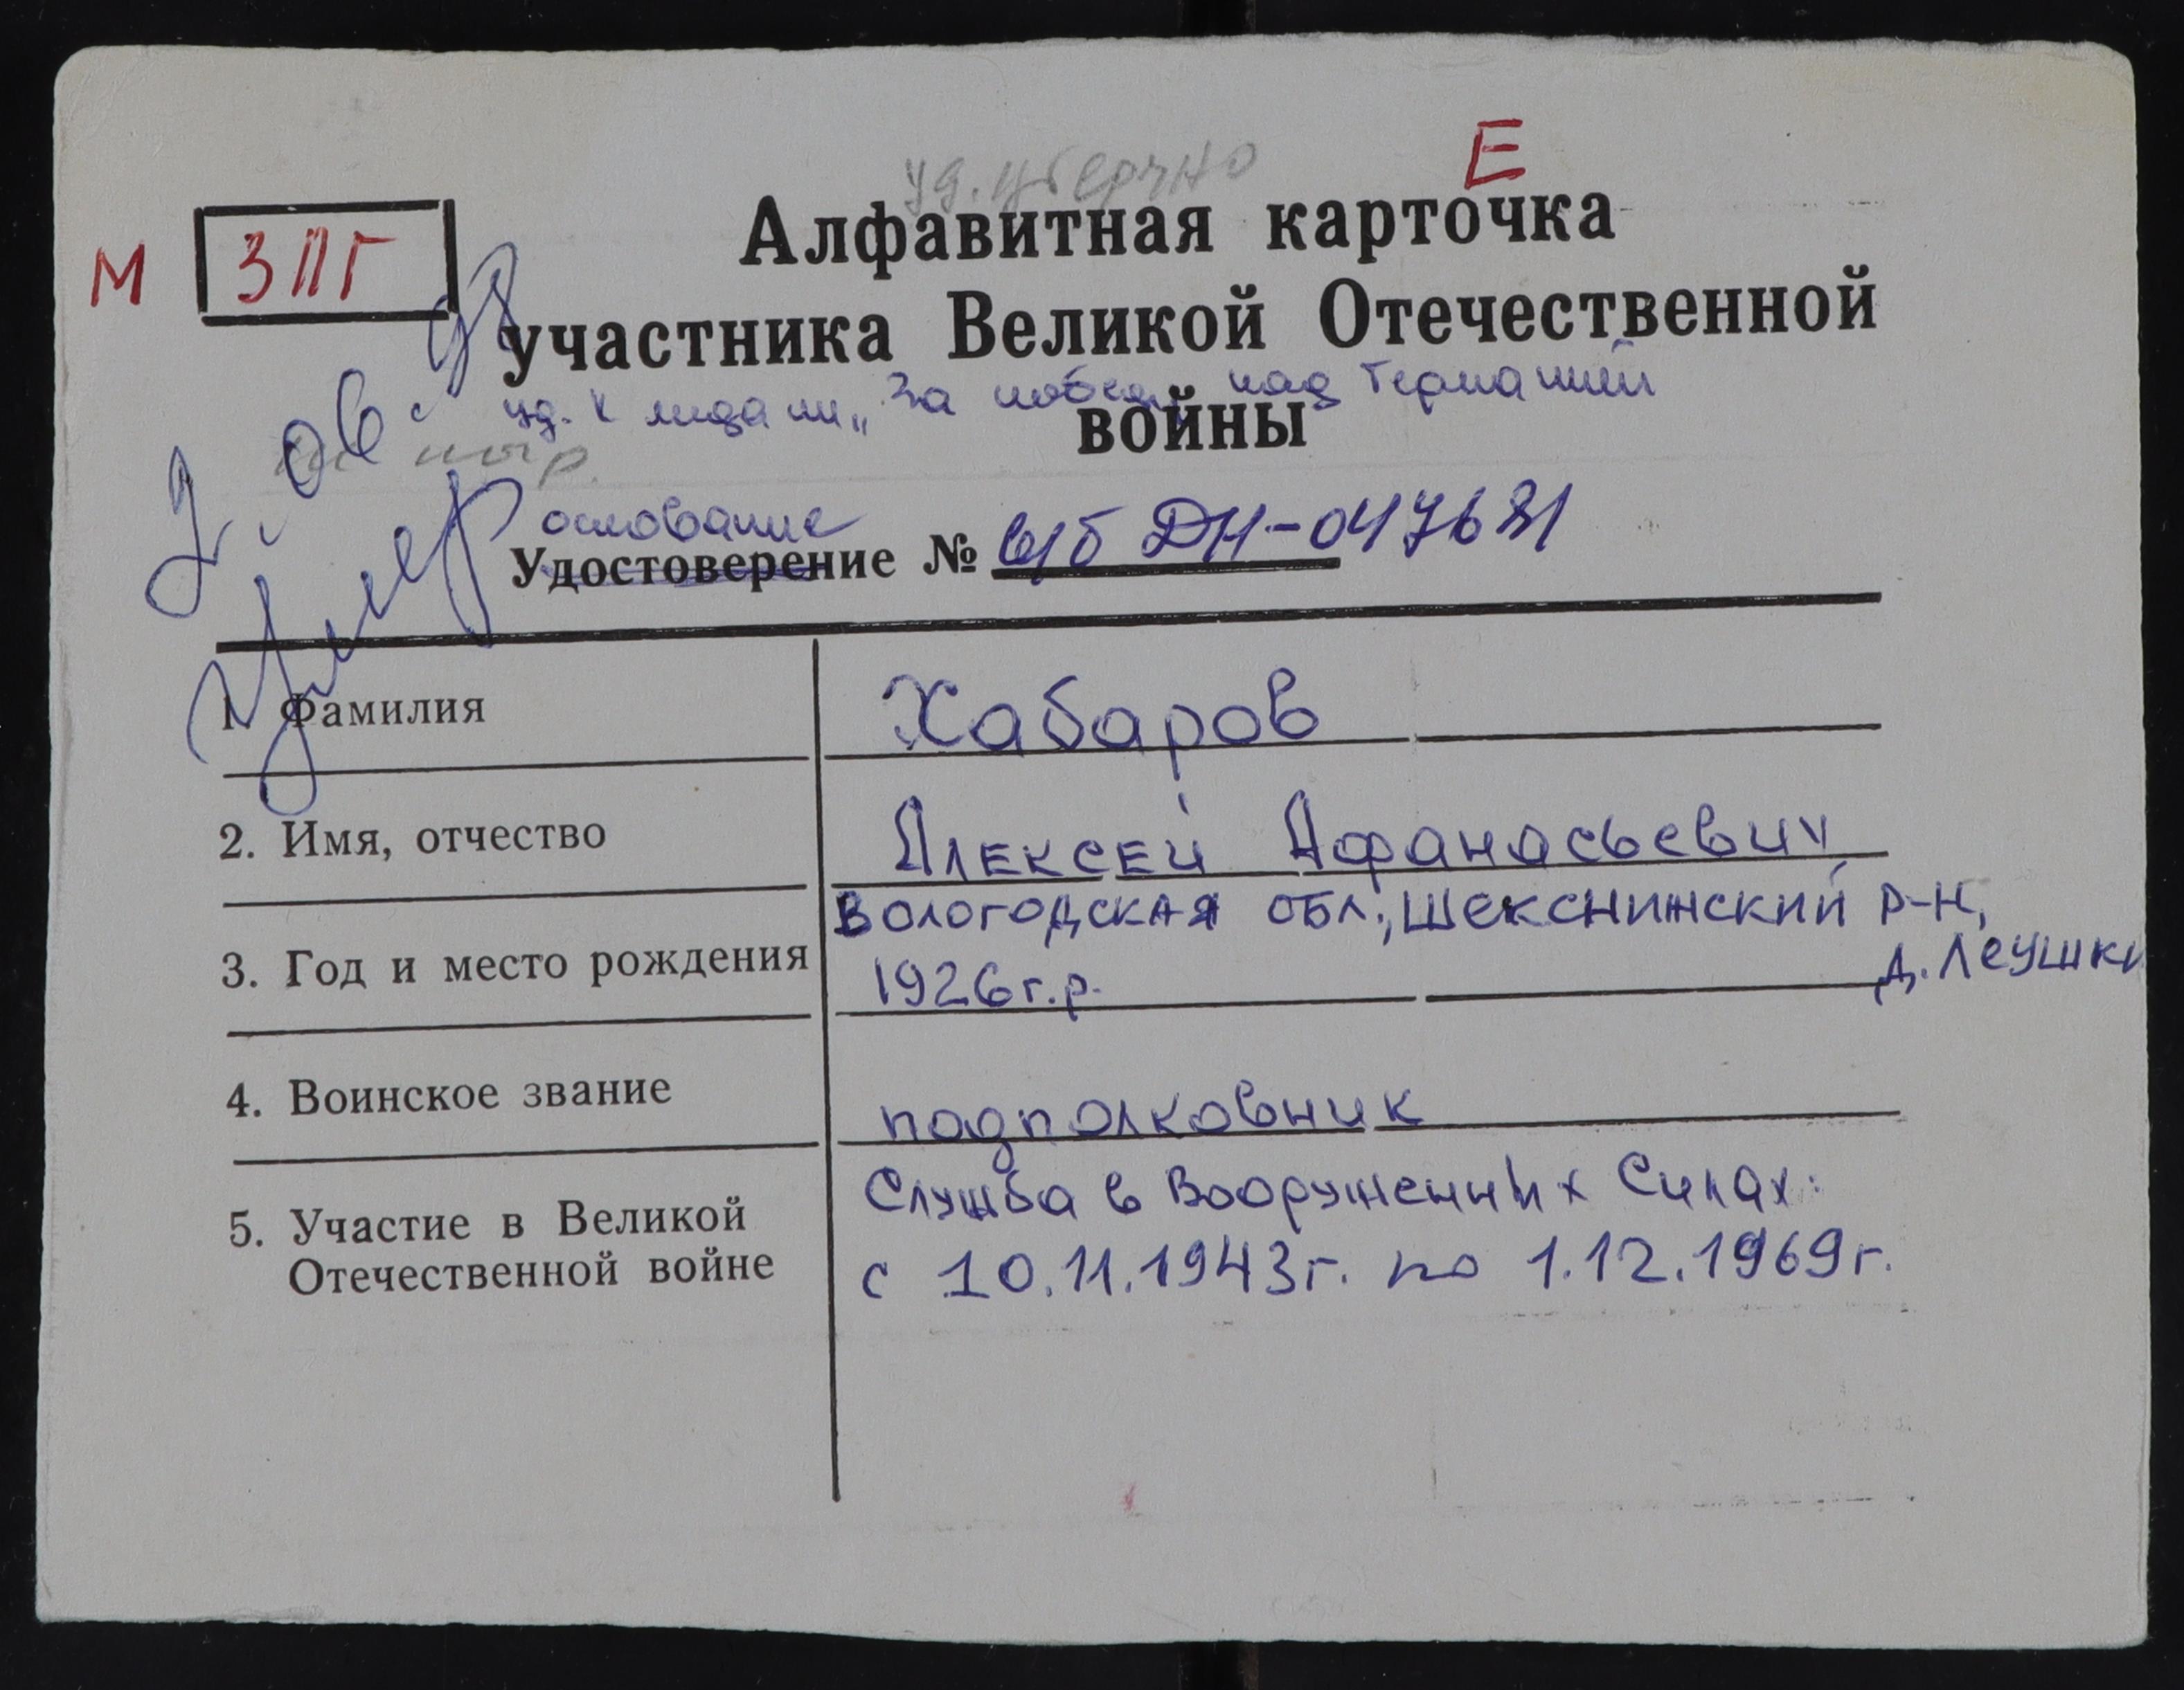 Е
Алфавитная карточка
М ЗПГ
участника Великой Отечественной
уд. к медали „За победу над Германией
войны
основание
Удостоверение №
1. Фамилия Хабаров
2. Имя, отчество Алексей Афанасьевич
Вологодская обл., Шекснинский р-н,
д. Леушки
3. Год и место рождения 1926 г.р.
4. Воинское звание подполковник
5. Участие в Великой Отечественной войне Служба в Вооруженных Силах:
с 10.11.1943г. по 1.12.1969г.